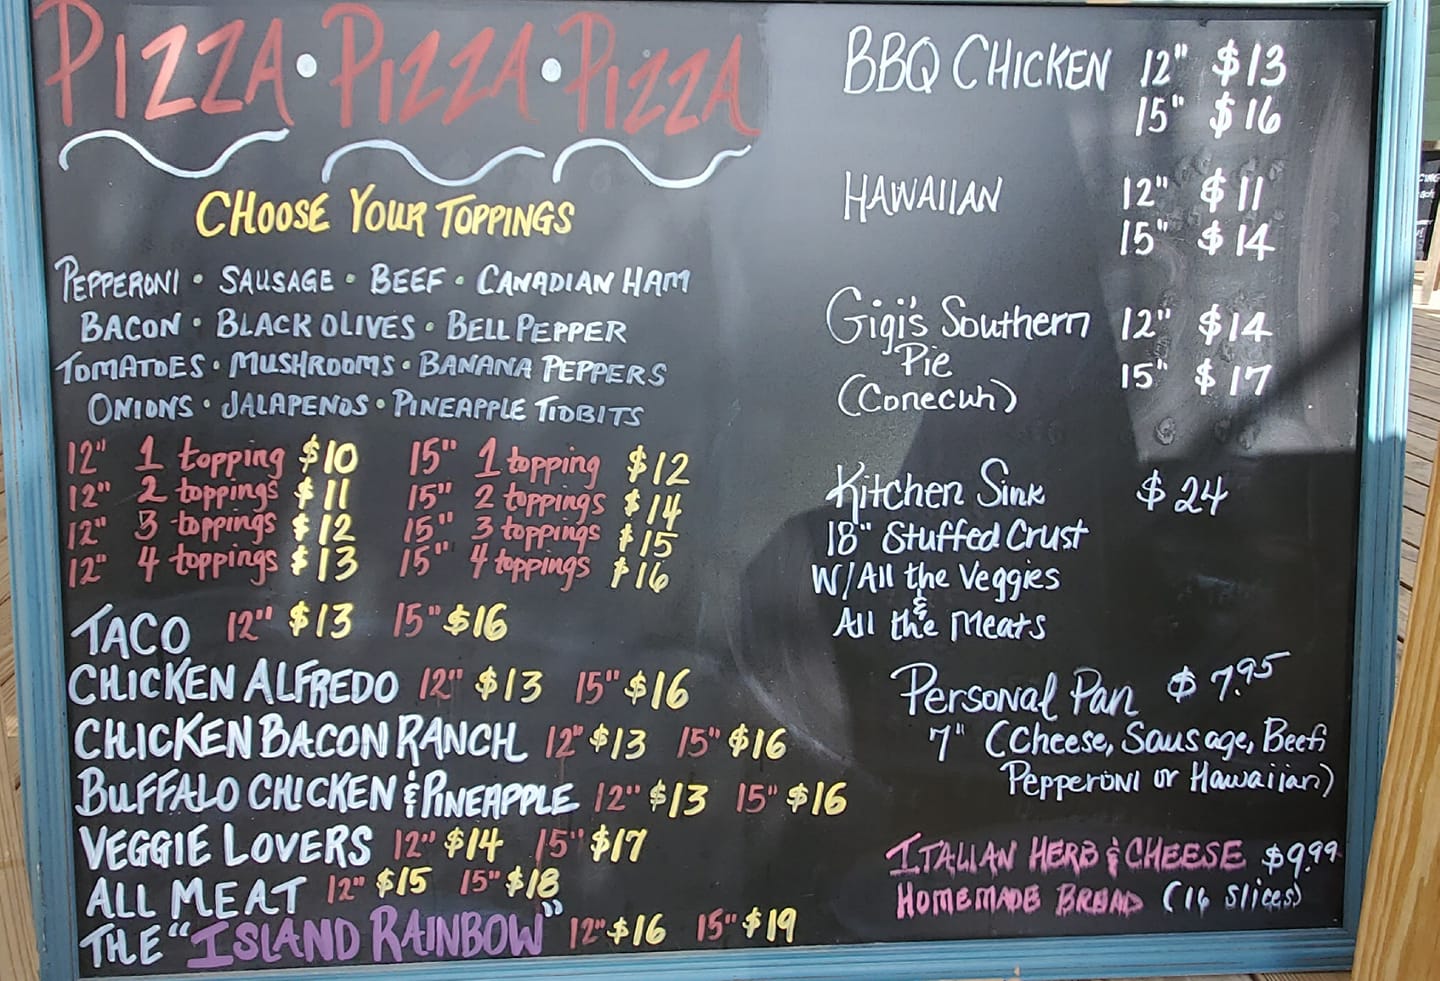 PIZZA • PIZZA • PIZZA
CHOOSE YOUR TOPPINGS
PEPPERONI • SAUSAGE • BEEF • CANADIAN HAM
BACON • BLACK OLIVES • BELL PEPPER
TOMATOES • MUSHROOMS • BANANA PEPPERS
ONIONS • JALAPENOS • PINEAPPLE TIDBITS
12" 1 topping $10 15" 1 topping $12
12" 2 toppings $11 15" 2 toppings $14
12" 3 toppings $12 15" 3 toppings $15
12" 4 toppings $13 15" 4 toppings $16
TACO 12" $13 15" $16
CHICKEN ALFREDO 12" $13 15" $16
CHICKEN BACON RANCH 12" $13 15" $16
BUFFALO CHICKEN & PINEAPPLE 12" $13 15" $16
VEGGIE LOVERS 12" $14 15" $17
ALL MEAT 12" $15 15" $18
THE "ISLAND RAINBOW" 12" $16 15" $19
BBQ CHICKEN 12" $13
15" $16
HAWAIIAN 12" $11
15" $14
Gigi's Southern 12" $14
Pie 15" $17
(Conecuh)
Kitchen Sink $24
18" Stuffed Crust
W/All the Veggies
&
All the Meats
Personal Pan $7.95
7" (Cheese, Sausage, Beef,
Pepperoni or Hawaiian)
ITALIAN HERB & CHEESE $9.99
HOMEMADE BREAD (16 slices)